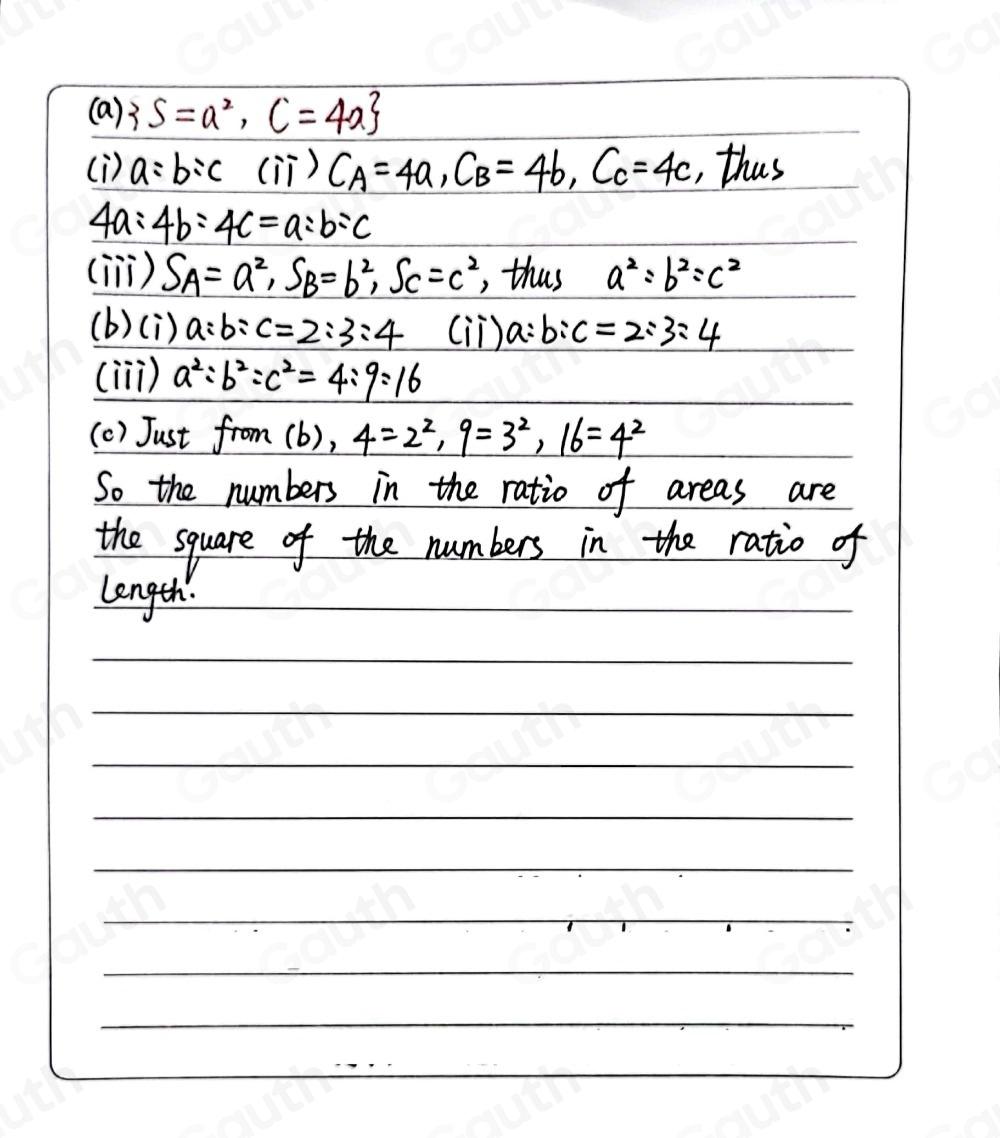 (a) {S = a², C = 4a}
(i) a:b:c (ii) C_A = 4a, C_B = 4b, C_C = 4c, thus
4a:4b:4c = a:b:c
(iii) S_A = a², S_B = b², S_C = c², thus a²:b²:c²
(b) (i) a:b:c = 2:3:4 (ii) a:b:c = 2:3:4
(iii) a²:b²:c² = 4:9:16
(c) Just from (b), 4 = 2², 9 = 3², 16 = 4²
So the numbers in the ratio of areas are
the square of the numbers in the ratio of
length.